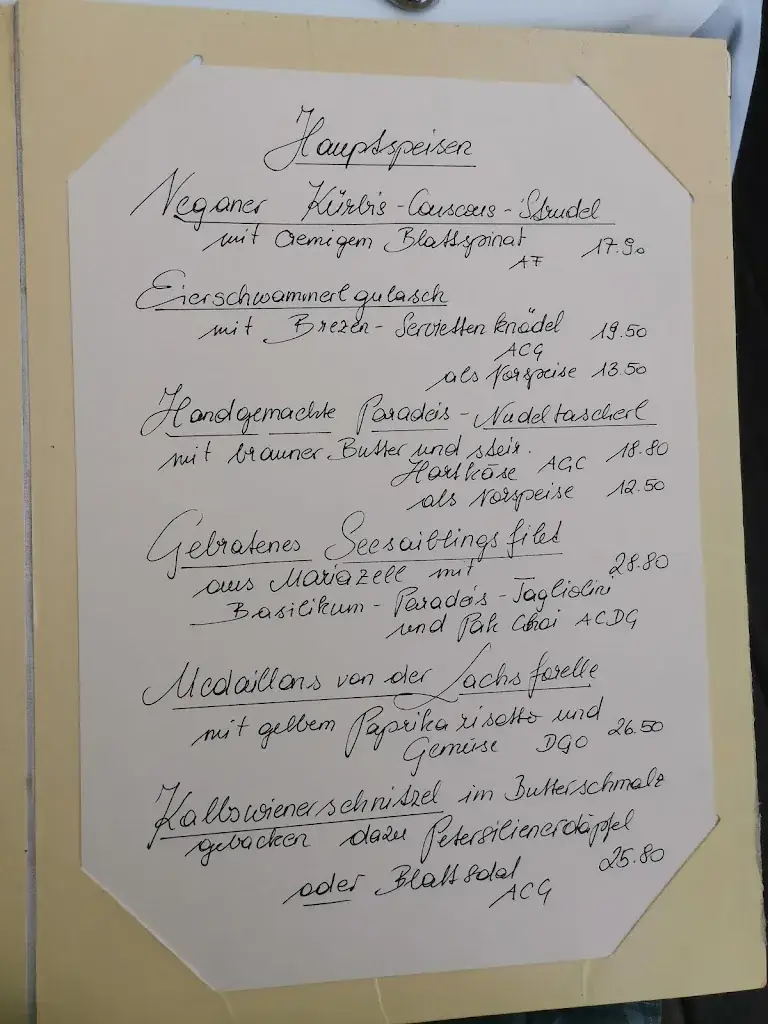 Hauptspeisen
Veganer Kürbis-Couscous-Strudel
mit cremigem Blattspinat
AF 17.90
Eierschwammerlgulasch
mit Brezen-Serviettenknödel 19.50
ACG
als Vorspeise 13.50
Handgemachte Paradeis-Nudeltascherl
mit brauner Butter und steir. 18.80
Hartkäse AGC
als Vorspeise 12.50
Gebratenes Seesaiblingsfilet
aus Mariazell mit 28.80
Basilikum-Paradeis-Tagliolini
und Pak Choi ACDG
Medaillons von der Lachsforelle
mit gelbem Paprikarisotto und
Gemüse DGO 26.50
Kalbswienerschnitzel im Butterschmalz
gebacken dazu Petersilienerdäpfel
oder Blattsalat 25.80
ACG